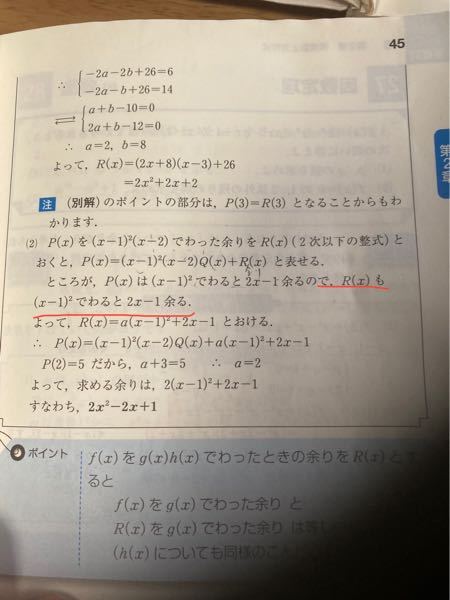 45
∴ {−2a−2b+26=6
−2a−b+26=14
⇄ {a+b−10=0
2a+b−12=0
∴ a=2, b=8
よって，R(x)=(2x+8)(x−3)+26
=2x²+2x+2
注 (別解)のポイントの部分は，P(3)=R(3) となることからもわ
かります．
(2) P(x) を (x−1)²(x−2) でわった余りを R(x) (2次以下の整式) と
おくと，P(x)=(x−1)²(x−2)Q(x)+R(x) と表せる．
ところが，P(x) は (x−1)² でわると 2x−1 余るので，R(x) も
(x−1)² でわると 2x−1 余る．
よって，R(x)=a(x−1)²+2x−1 とおける．
∴ P(x)=(x−1)²(x−2)Q(x)+a(x−1)²+2x−1
P(2)=5 だから，a+3=5 ∴ a=2
よって，求める余りは，2(x−1)²+2x−1
すなわち，2x²−2x+1
ポイント
f(x) を g(x)h(x) でわったときの余りを R(x) とす
ると
f(x) を g(x) でわった余り と
R(x) を g(x) でわった余り は等し
(h(x) についても同様のこと